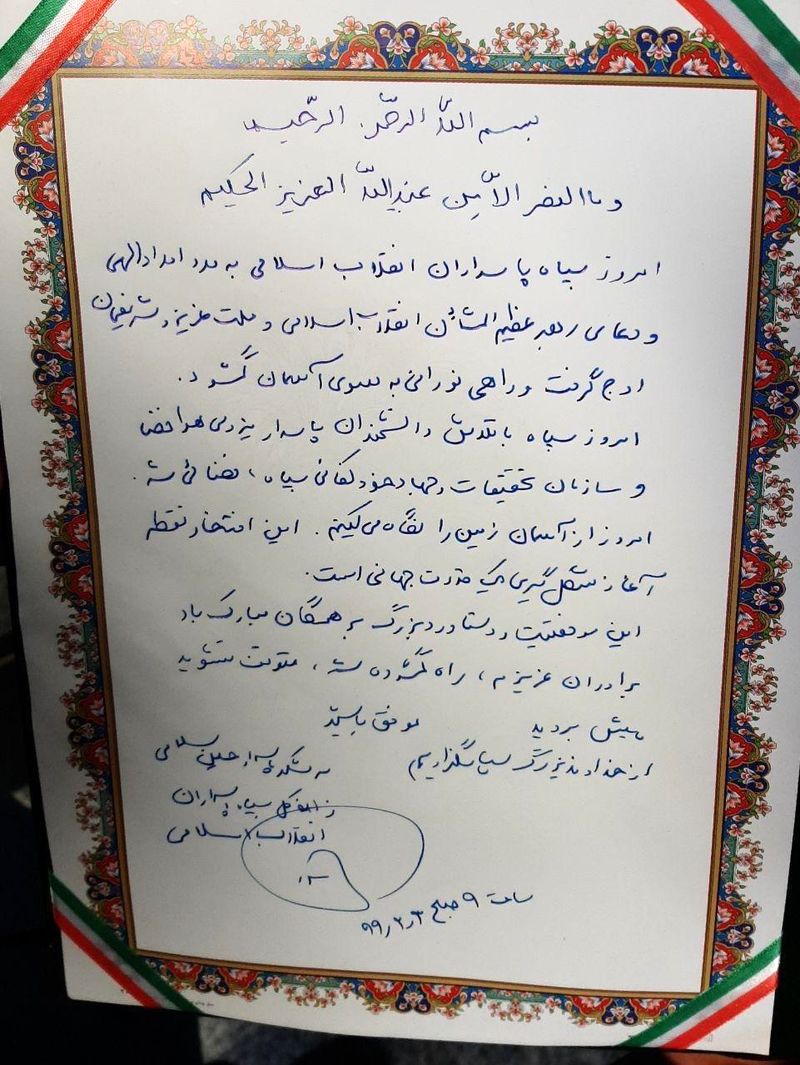 بسم اللّه الرحمن الرحیم
و ما النصر الا من عند اللّه العزیز الحکیم
امروز سپاه پاسداران انقلاب اسلامی به مدد امداد الهی
و دعای رهبر عظیم الشأن انقلاب اسلامی و ملت عزیز و شریفمان
اوج گرفت و راهی نورانی به سوی آسمان گشود.
امروز سپاه با تلاش دانشمندان پاسدار نیروی هوافضا
و سازمان تحقیقات و جهاد خودکفائی سپاه، فضائی شد.
امروز از آسمان زمین را نگاه می‌کنیم. این افتخار نقطه
آغاز شکل گیری یک قدرت جهانی است.
این موفقیت و دستاورد بزرگ بر همگان مبارک باد
برادران عزیزم، راه گشوده شد، متوقف نشوید
پیش بروید موفق باشید
از خداوند بزرگ سپاسگزاریم
سرلشکر پاسدار حسین سلامی
فرمانده کل سپاه پاسداران
انقلاب اسلامی
ساعت ۹ صبح ۹۹٫۲٫۳